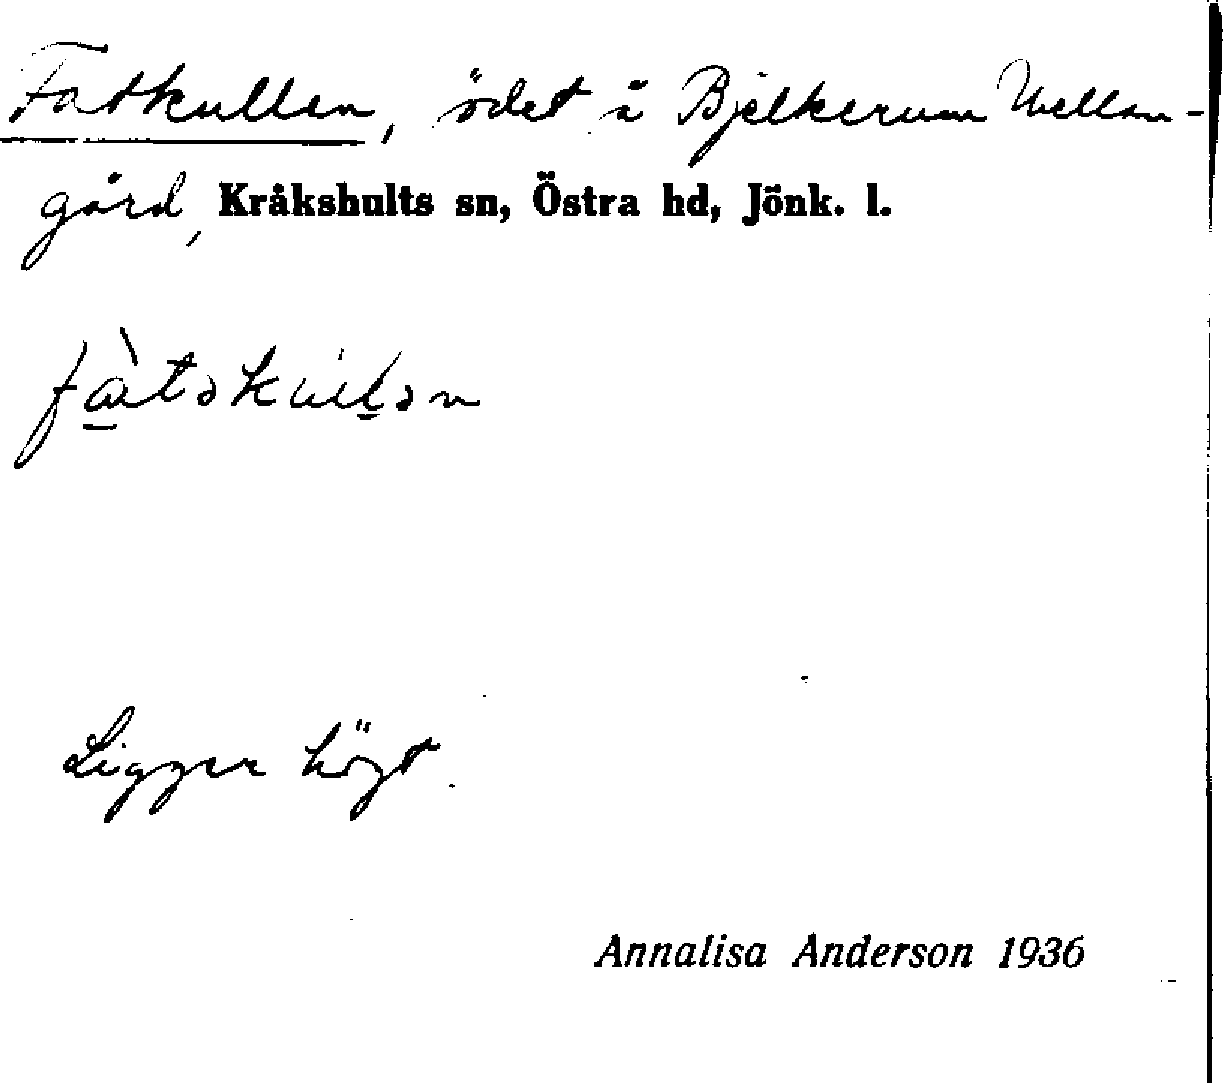 Fatkullen, ödet å Bjelkerum Mellan-
gård, Kråkshults sn, Östra hd, Jönk. l.
Ligger högt.
Annalisa Anderson 1936